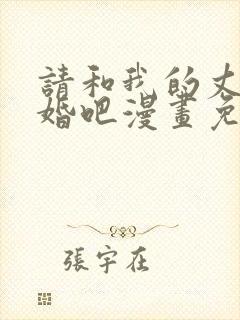 請和我的丈
婚吧漫畫免
張宇在